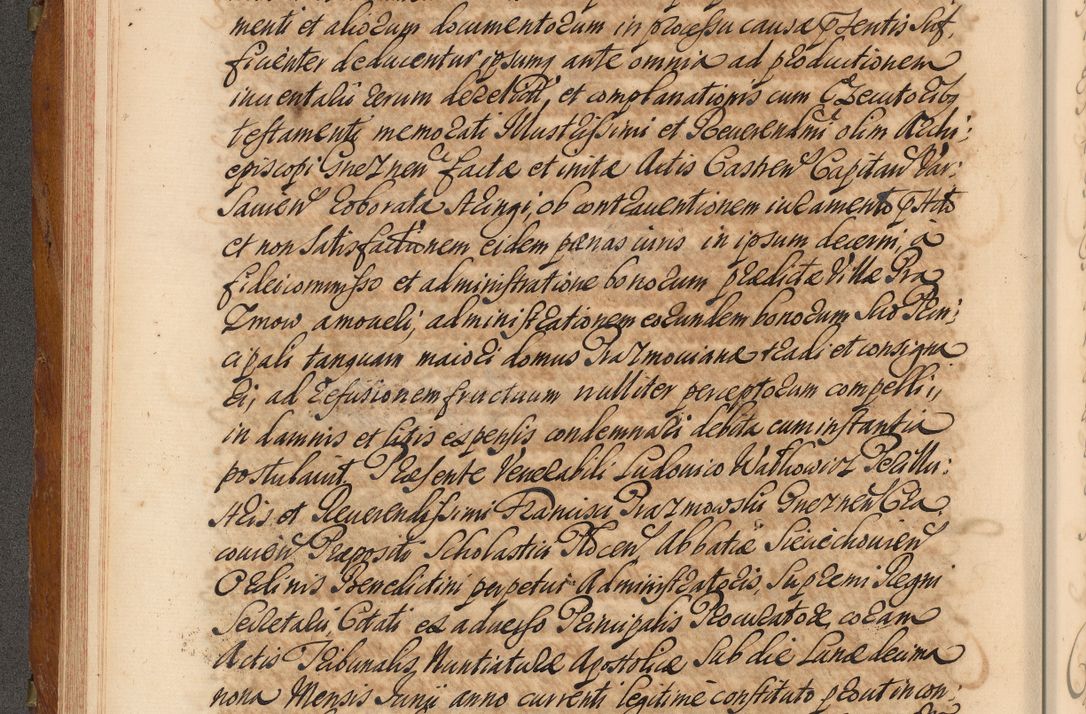 menti et aliorum documentorum in processu causæ pñtentis suf,
ficienter deducentur ipsumq ante omnia ad productionem
inventalis rerum derelict, et complanationis cum Executorib9
testamenti memorati Illustrissimi et Reverendmi olim Archi:
episcopi Gneznen factæ et initæ Actis Castren Capitan Var:
savien roborata stringi, ob contraventionem iuramento pstito
et non satisfactionem eidem pænas iuris in ipsum decerni, a
fideicommisso et administratione bonorum prædictæ Villæ Pra
zmow amoveri, administrationem eorundem bonorum suo Prin:
cipali tanquam maiori domus Prazmovianæ tradi et consigna
ri, ad refusionem fructuum nulliter perceptorum compelli,
in damnis et litis expensis condemnari debita cum instantia
postulavit. Præsente Venerabili Ludovico Wathowicz Perillu:
stris et Reverendissimi Francisci Prazmowski Gneznen Cra,
covien Præpositi Scholastici Plocen Abbatiæ Sieciechovien
Ordinis Benedictini perpetui Administratoris, Supremi Regni
Secretarii, Citati ex adverso Principalis Procuratore, coram
Actis Tribunalis Nuntiaturæ Apostolicæ sub die Lunæ decima
nona Mensis Junij anno currenti legitime constituto prout incon,